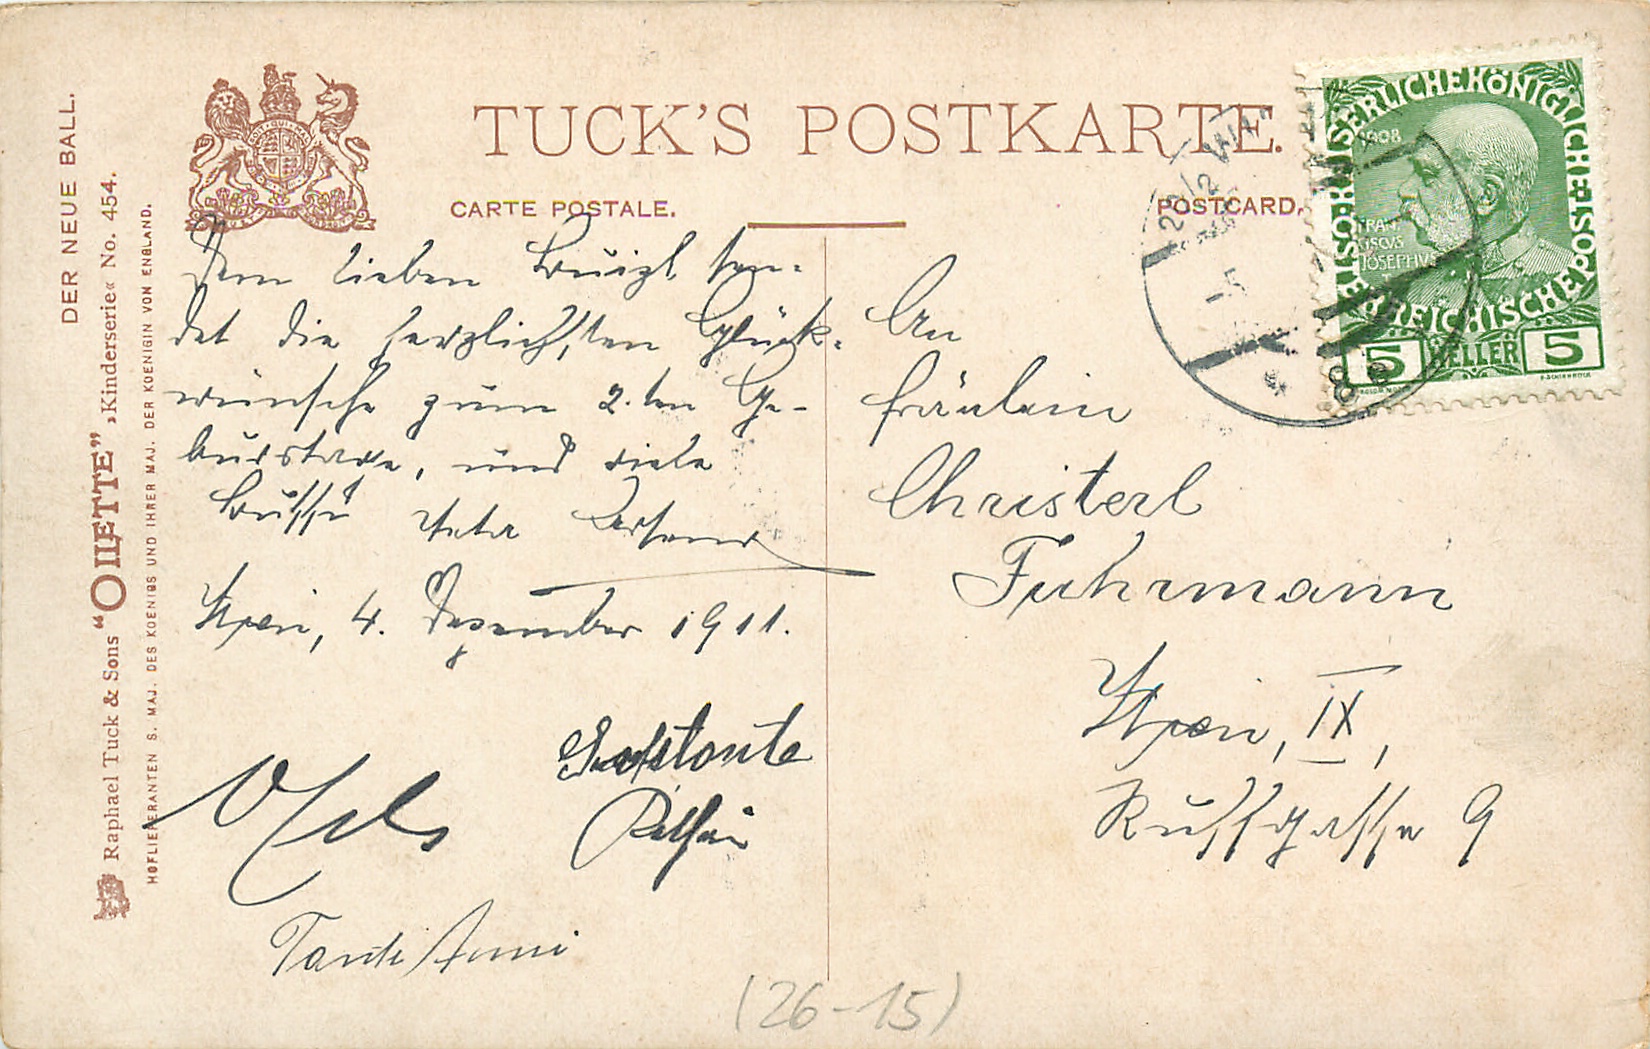 DER NEUE BALL.
Raphael Tuck & Sons "OILETTE" »Kinderserie« No. 454.
HOFLIEFERANTEN S. MAJ. DES KOENIGS UND IHRER MAJ. DER KOENIGIN VON ENGLAND.
TUCK'S POSTKARTE.
CARTE POSTALE.
POSTCARD.
Dem lieben sen-
det die herzlichsten Glück-
wünsche zum 2.ten Ge-
burtstage, und viele
Bussi
Wien, 4. Dezember 1911.
Tante Anni
An
Fräulein
Christerl
Fuhrmann
Wien, IX,
9
KAISERLICHE KÖNIGLICHE ÖSTERREICHISCHE POST
1908
FRAN
CISCVS
JOSEPHVS
5 HELLER 5
(26-15)